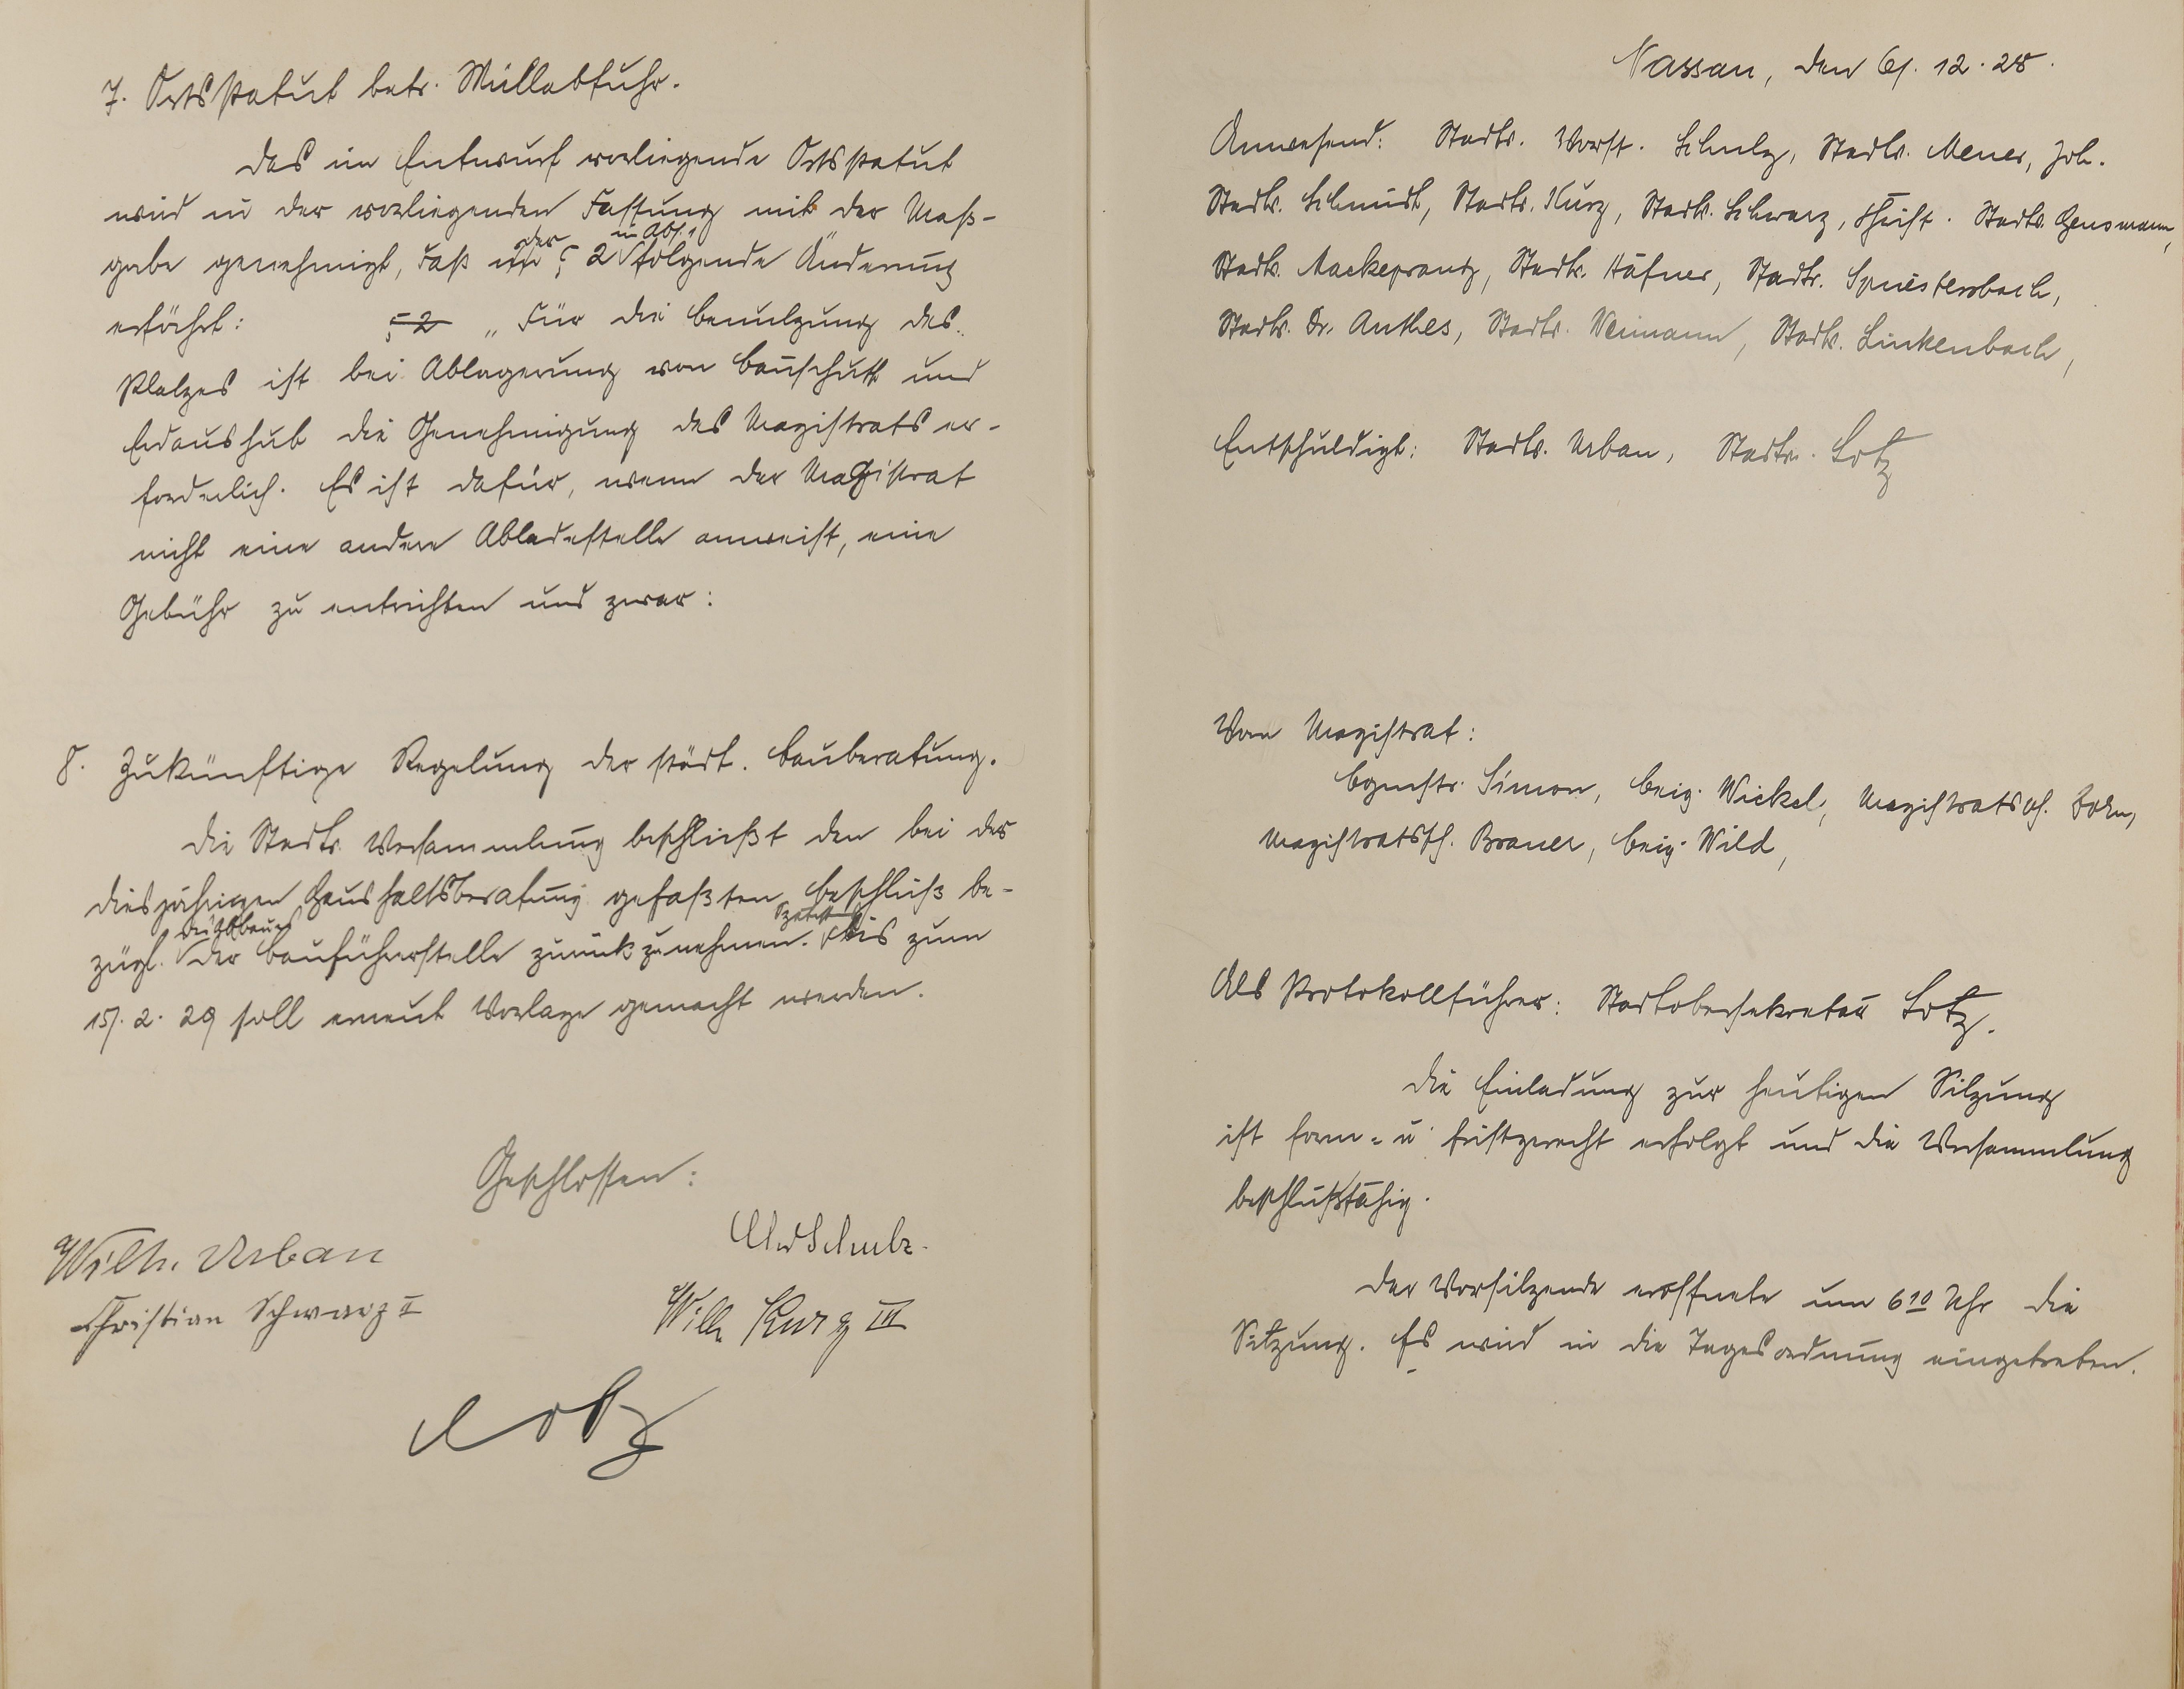 7. Ortsstatut betr. Müllabfuhr.
Das im Entwurf vorliegende Ortsstatut
wird in der vorliegenden Fassung mit der Maß-
gabe genehmigt, daß der § 2 in Abs. 1 folgende Änderung
erfährt: § 2 „Für die Benutzung des
Platzes ist bei Ablagerung von Bauschutt und
Erdaushub die Genehmigung des Magistrats er-
forderlich. Es ist dafür, wenn der Magistrat
nicht eine andere Abladestelle anweist, eine
Gebühr zu entrichten und zwar:
8. Zukünftige Regelung der städt. Bauberatung.
Die Stadtv. Versammlung beschließt den bei der
diesjährigen Haushaltsberatung gefaßten Beschluß be-
zügl. des Abbaues der Bauführerstelle zurückzunehmen. Bis zum
15. 2. 29 soll erneut Vorlage gemacht werden.
Geschlossen:
Wilh. Urban
Schulz.
Christian Schwarz II
Wilh Kurz III
Lotz
Nassau, den 6. 12. 28.
Anwesend: Stadtv. Vorst. Schulz, Stadtv. Meuer, Joh.
Stadtv. Schmidt, Stadtv. Kurz, Stadtv. Schwarz, Christ. Stadtv. Hensmann,
Stadtv. Mackeprang, Stadtv. Häfner, Stadtv. Spriestersbach,
Stadtv. Dr. Anthes, Stadtv. Neimann, Stadtv. Linkenbach,
Entschuldigt: Stadtv. Urban, Stadtv. Lotz
Vom Magistrat:
Bgmstr. Simon, Beig. Wickel, Magistratssch.
Magistratssch. Brauer, Beig. Wild,
Als Protokollführer: Stadtobersekretär Lotz.
Die Einladung zur heutigen Sitzung
ist form- u. fristgerecht erfolgt und die Versammlung
beschlußfähig.
Der Vorsitzende eröffnete um 6 10 Uhr die
Sitzung. Es wird in die Tagesordnung eingetreten.